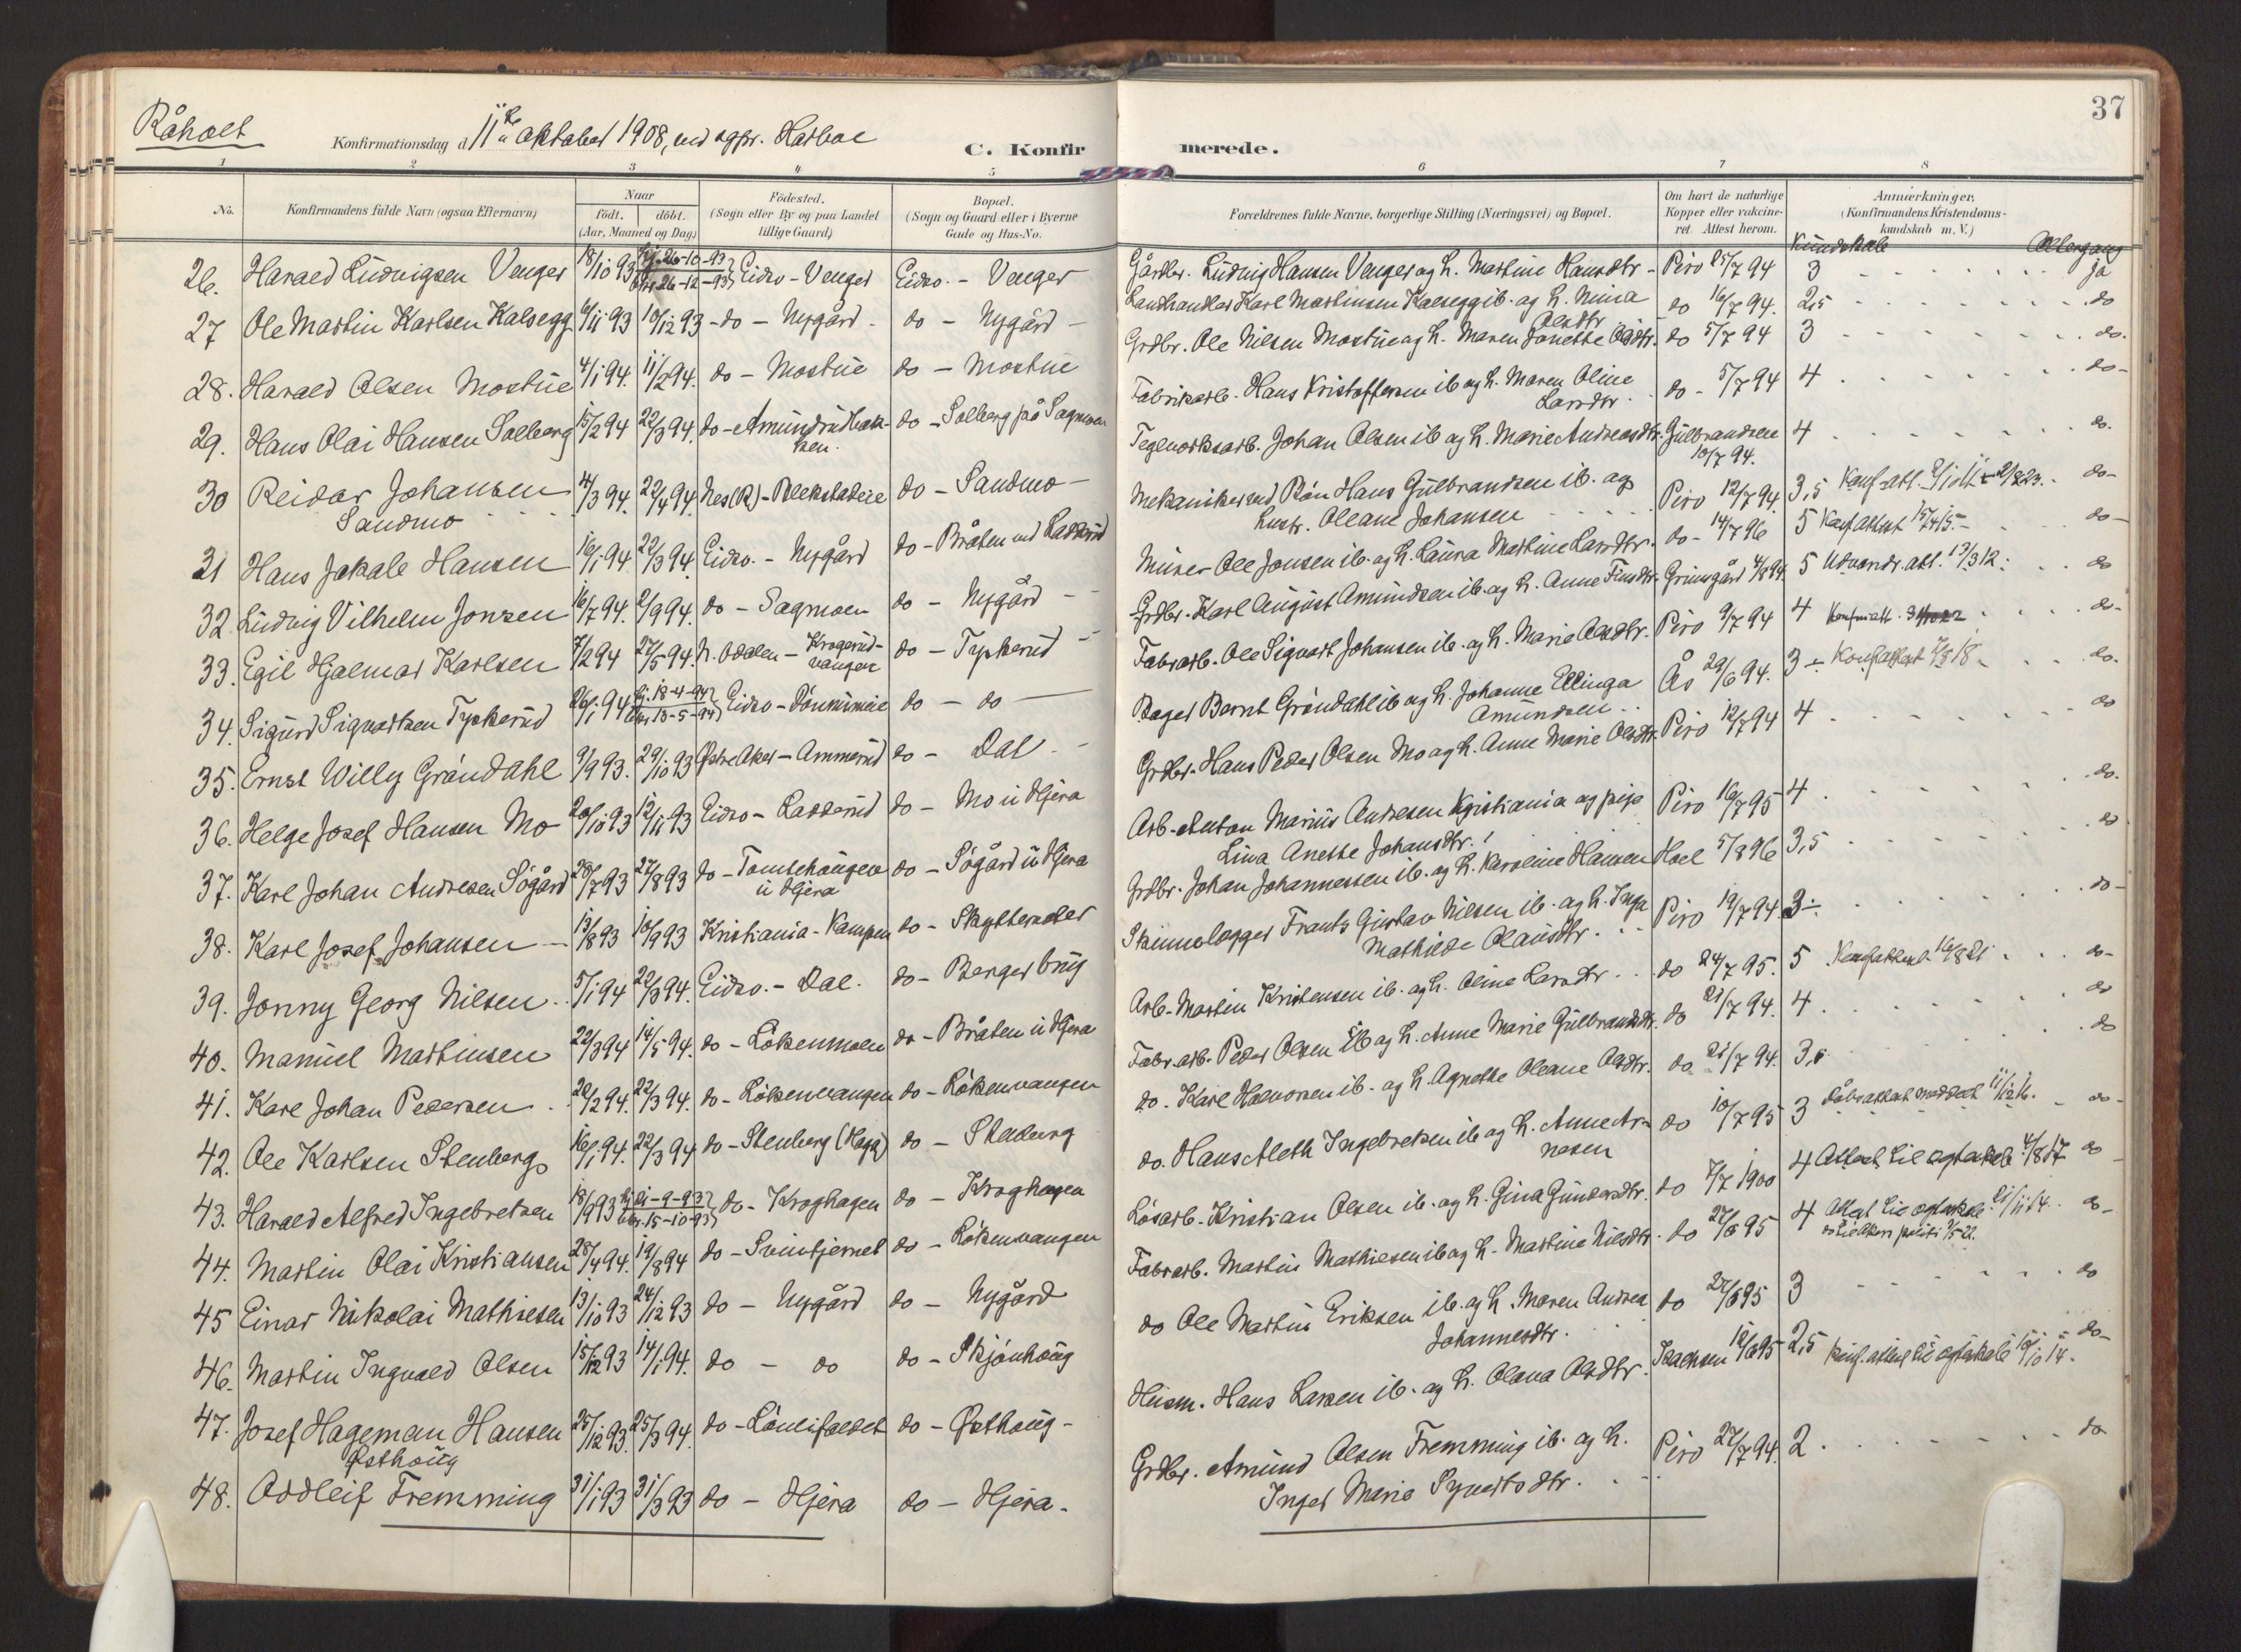 Råholt
Konfirmationsdag d. 11te oktober 1908, ved sgpr. Harboe
C. Konfirmerede.
37
1 2 3 4 5 6 7 8
No.
Konfirmandens fulde Navn (ogsaa Efternavn)
Naar
født. døbt.
(Aar, Maaned og Dag)
Födested.
(Sogn eller By og paa Landet
tillige Gaard)
Bopæl.
(Sogn og Gaard eller i Byerne
Gade og Hus-No.
Forældrenes fulde Navne, borgerlige Stilling (Næringsvei) og Bopæl.
Om havt de naturlige
Kopper eller vakcine-
ret. Attest herom.
Anmærkninger,
(Konfirmandens Kristendoms-
kundskab m. V.)
Kundskab Altergang
26. Harald Ludvigsen Venger 18/10 93 Hj. 26-10-93 Kirk. 26-12-93 Eidsv. - Venger Eidsv. - Venger Gårdbr. Ludvig Hansen Venger og h. Martine Hansdtr - Piro 25/7 94 3 ja
27 Ole Martin Karlsen Kalsegg 6/11 93 10/12 93 - do - Nygård - do - Nygård - Landhandler Karl Martinsen Kalsegg ib. og h. Mina Olsdtr do 16/7 94. 2,5 do
28. Harald Olsen Mostue 4/1 94. 11/2 94. do - Mostue do - Mostue Grdbr. Ole Nilsen Mostue og h. Maren Jonette Olsdtr. do 5/7 94 3 do.
29. Hans Olai Hansen Solberg 15/2 94 22/3 94. do - Amundrudbakken. do - Solberg på Sagmoen Fabrikarb. Hans Kristoffersen ib og h. Maren Oline Larsdtr. do - 5/7 94 4 do-
30 Reidar Johansen Sandmo 14/3 94. 22/4 94. Nes (R) - Blekstadeie do - Sandmo - Teglverksarb. Johan Olsen ib og h. Marie Andreasdtr. Gulbrandsen 10/7 94. 4 do.
31 Hans Jakob Hansen 16/1 94. 22/3 94. Eidsv. - Nygård do - Bråten ved Ladderud Mekaniker ved Røn Hans Gulbrandsen ib. og hustr. Oleane Johansen Piro 12/7 94. 3,5 do-
32. Ludvig Vilhelm Jonsen 16/7 94. 2/9 94. do - Sagmoen do - Nygård - Murer Ole Jonsen ib. og h. Laura Martine Larsdtr. do - 14/7 96 5 Konf. attest 15/4 15. do-
33. Egil Hjalmar Karlsen 7/2 94 27/5 94. N. Odalen - Krogerudvangen do - Tyskerud Grdbr. Karl August Amundsen ib. og h. Anne Finsdtr. Grimsgård 4/8 94. 5 Udvandr. att. 13/3 12. do
34. Sigurd Sigvartsen Tyskerud 26/1 94 Hj. 18-4-94 Kirk. 13-5-94 Eidsv - Dønnimeie do - do Fabrarb. Ole Sigvart Johansen ib. og h. Marie Olsdtr. Piro 9/7 94 4 Konf. att. do-
35. Ernst Willy Grøndahl 9/9 93. 29/10 93 Østre Aker - Ammerud do - Dal - Bager Bernt Grøndahl ib og h. Johanne Ellinga Amundsen Ås 29/6 94. 3 ÷ Konf. attest do.
36. Helge Josef Hansen Mo 20/10 93 12/11 93 Eidsv - Ladderud do - Mo i Hjera Grdbr. Hans Peder Olsen Mo og h. Anne Marie Olsdtr. Piro 12/7 94 4 do
37. Karl Johan Andresen Søgård 28/7 93 27/8 93 do - Tomtehaugen i Hjera do - Søgård i Hjera Arb. Anton Marius Andresen Kristiania og pige Lina Anette Johansdtr. Piro 16/7 95 4 do.
38. Karl Josef Johansen 13/8 93 10/9 93 Kristiania - Kampen do - Grdbr. Johan Johannessen ib. og h. Karoline Hansen Hoel 5/8 96 3,5 do
39. Jonny Georg Nilsen 5/1 94 22/3 94. Eidsv. - Dal. do - Berger brug Skinnelægger Frantz Gustav Nilsen ib. og h. Inga Mathilde Olausdtr. Piro 19/7 94. 3÷ do-
40. Manuel Martinsen 22/3 94 14/5 94. do - Løkenmoen do - Bråten i Hjera Arb. Martin Kristensen ib. og h. Oline Larsdtr do 24/7 95. 5 Konf. attest 16/8 21 do-
41. Karl Johan Pedersen 20/2 94. 22/3 94. do - Løkenvangen do - Løkenvangen Fabr. arb. Peder Olsen ib og h. Anne Marie Gulbrandsdtr. do 21/7 94. 4 do
42. Ole Karlsen Stenberg 16/1 94. 22/3 94 do - Stenberg (Haga) do - Stenberg do. Karl Halvorsen ib. og h. Agnethe Oleane Olsdtr. do 21/7 94. 3,5 do
43. Harald Alfred Ingebretsen 18/9 93 Hj. 21-9-93 Kirk. 15-10-93 do - Kroghagen do - Kroghagen do. Hans Aleth Ingebretsen ib og h. Anne Arnesen do 10/7 95 3 Dåbsattest meddelt do-
44. Martin Olai Kristiansen 28/4 94. 19/8 94 do - Svintjernet do - Løkenvangen Løsarb. Kristian Olsen ib. og h. Gina Gundersdtr. do 7/7 1900 4 Attest til ægteskab 4/8 17 do
45 Einar Nikolai Mathiesen 13/10 93 24/12 93 do - Nygård do - Nygård Fabrarb. Martin Mathiesen ib og h. Martine Nilsdtr. do 27/6 95 4 Attest til ægteskab 21/11 14. do-
46. Martin Ingvald Olsen 15/12 93 14/1 94. do - do do - Skjønhaug do Ole Martin Eriksen ib. og h. Maren Andrea Johannesdtr. do 27/6 95 3 do
47. Josef Hageman Hansen Østhaug 25/12 93. 25/3 94. do - do - Østhaug - Husm. Hans Larsen ib. og h. Olava Olsdtr. Isachsen 12/6 95 2,5 Konf. attest til ægteskab do-
48. Oddleif Fremming 31/1 93 31/3 93 do - Hjera do - Hjera. Grdbr. Amund Olsen Fremming ib. og h. Inger Marie Syvertsdtr. Piro 27/7 94. 2 do